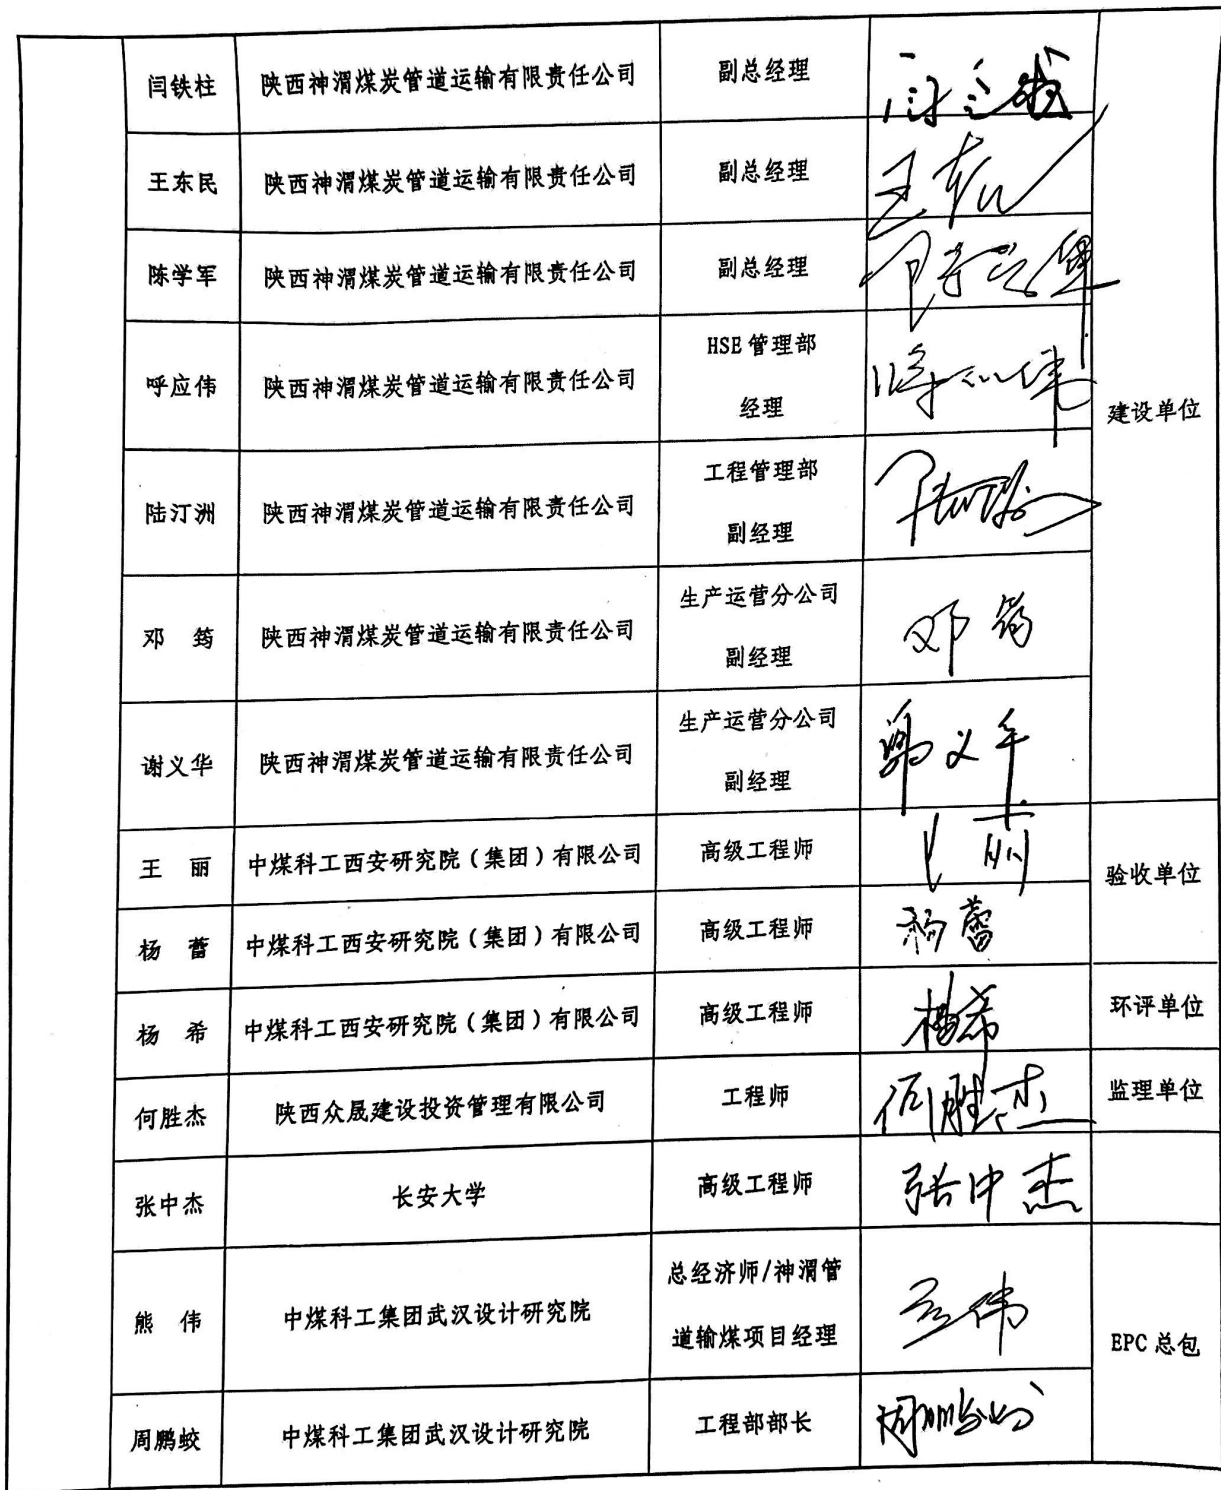 闫铁柱 陕西神渭煤炭管道运输有限责任公司 副总经理
王东民 陕西神渭煤炭管道运输有限责任公司 副总经理
陈学军 陕西神渭煤炭管道运输有限责任公司 副总经理
呼应伟 陕西神渭煤炭管道运输有限责任公司 HSE 管理部
经理
建设单位
陆汀洲 陕西神渭煤炭管道运输有限责任公司 工程管理部
副经理
邓 筠 陕西神渭煤炭管道运输有限责任公司 生产运营分公司 邓筠
副经理
谢义华 陕西神渭煤炭管道运输有限责任公司 生产运营分公司 谢义华
副经理
王 丽 中煤科工西安研究院（集团）有限公司 高级工程师
验收单位
杨 蕾 中煤科工西安研究院（集团）有限公司 高级工程师 杨蕾
杨 希 中煤科工西安研究院（集团）有限公司 高级工程师 杨希 环评单位
何胜杰 陕西众晟建设投资管理有限公司 工程师 何胜杰 监理单位
张中杰 长安大学 高级工程师 张中杰
熊 伟 中煤科工集团武汉设计研究院 总经济师/神渭管
道输煤项目经理
EPC 总包
周鹏蛟 中煤科工集团武汉设计研究院 工程部部长